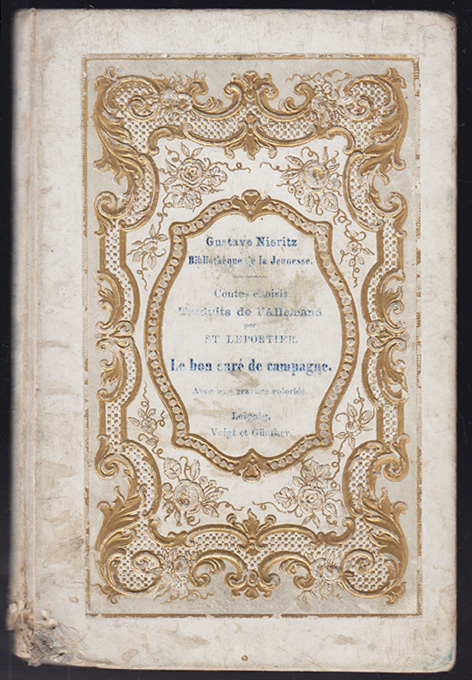 Gustave Nieritz
Bibliothèque de la Jeunesse.
Contes choisis
Traduits de l'Allemand
par
ST LEPORTIER.
Le bon curé de campagne.
Avec une gravure coloriée.
Leipzig,
Voigt et Günther.